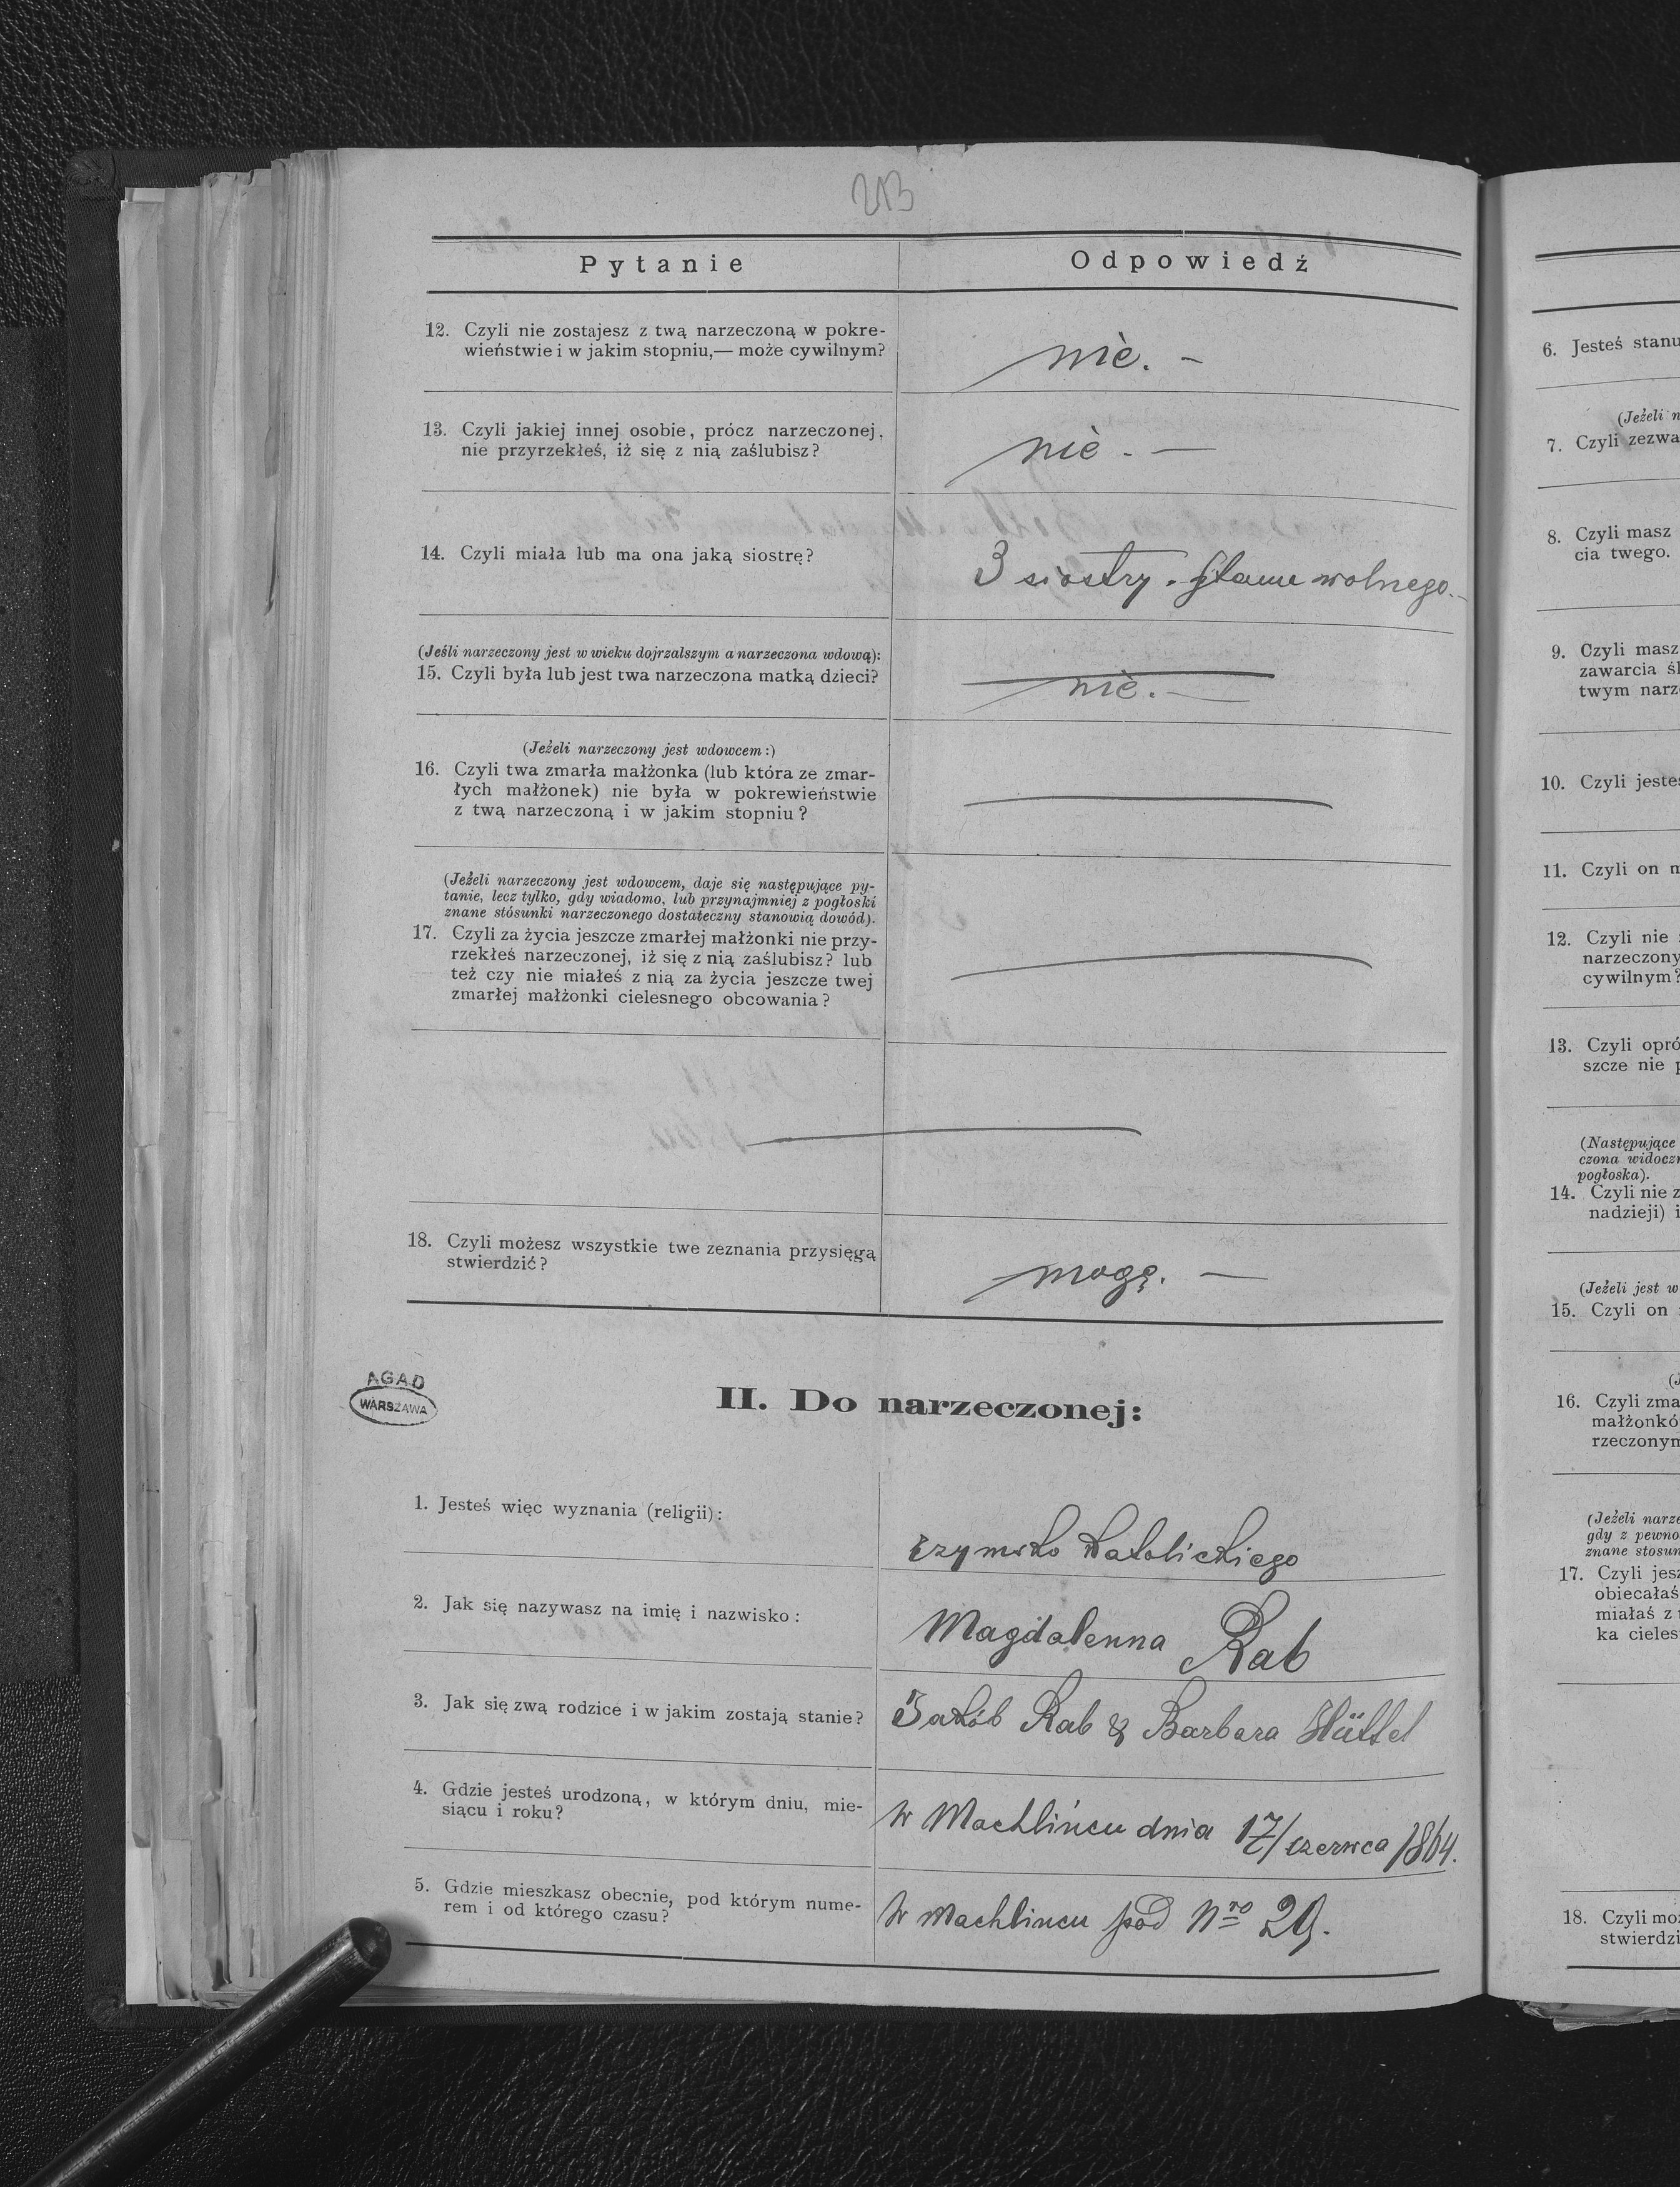 213
Pytanie
Odpowiedź
12. Czyli nie zostajesz z twą narzeczoną w pokre-
wieństwie i w jakim stopniu,— może cywilnym?
nie. -
13. Czyli jakiej innej osobie, prócz narzeczonej,
nie przyrzekłeś, iż się z nią zaślubisz?
nie. —
14. Czyli miała lub ma ona jaką siostrę?
3 siostry. Stanu wolnego.-
(Jeśli narzeczony jest w wieku dojrzalszym a narzeczona wdową):
15. Czyli była lub jest twa narzeczona matką dzieci?
nie. —
(Jeżeli narzeczony jest wdowcem:)
16. Czyli twa zmarła małżonka (lub która ze zmar-
łych małżonek) nie była w pokrewieństwie
z twą narzeczoną i w jakim stopniu?
(Jeżeli narzeczony jest wdowcem, daje się następujące py-
tanie, lecz tylko, gdy wiadomo, lub przynajmniej z pogłoski
znane stósunki narzeczonego dostateczny stanowią dowód).
17. Czyli za życia jeszcze zmarłej małżonki nie przy-
rzekłeś narzeczonej, iż się z nią zaślubisz? lub
też czy nie miałeś z nią za życia jeszcze twej
zmarłej małżonki cielesnego obcowania?
18. Czyli możesz wszystkie twe zeznania przysięgą
stwierdzić?
mogę. —
AGAD
WARSZAWA
II. Do narzeczonej:
1. Jesteś więc wyznania (religii):
rzymsko katolickiego
2. Jak się nazywasz na imię i nazwisko:
Magdalenna Rab
3. Jak się zwą rodzice i w jakim zostają stanie?
Jakób Rab & Barbara Hüttel
4. Gdzie jesteś urodzoną, w którym dniu, mie-
siącu i roku?
W Machlińcu dnia 17/czerwca 1864.
5. Gdzie mieszkasz obecnie, pod którym nume-
rem i od którego czasu?
W Machlincu pod Nro 29.
6. Jesteś stanu
(Jeżeli n
7. Czyli zezwa
8. Czyli masz
cia twego.
9. Czyli masz
zawarcia śl
twym narz
10. Czyli jeste
11. Czyli on m
12. Czyli nie
narzeczony
cywilnym?
13. Czyli opró
szcze nie p
(Następujące
czona widocz
pogłoska).
14. Czyli nie z
nadzieji) i
(Jeżeli jest w
15. Czyli on
(J
16. Czyli zma
małżonkó
rzeczonym
(Jeżeli narze
gdy z pewno
znane stosun
17. Czyli jesz
obiecałaś
miałaś z
ka cieles
18. Czyli moż
stwierdzi